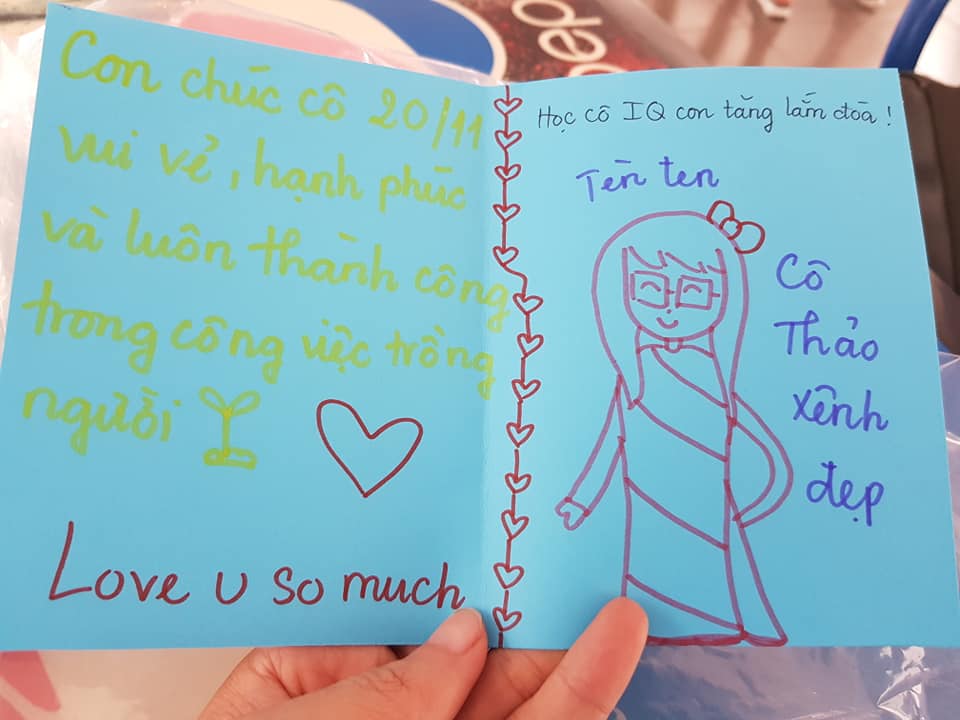 Con chúc cô 20/11
vui vẻ, hạnh phúc
và luôn thành công
trong công việc trồng
người
Love u so much
Học cô IQ con tăng lắm đoà!
Tèn ten
Cô
Thảo
xênh
đẹp